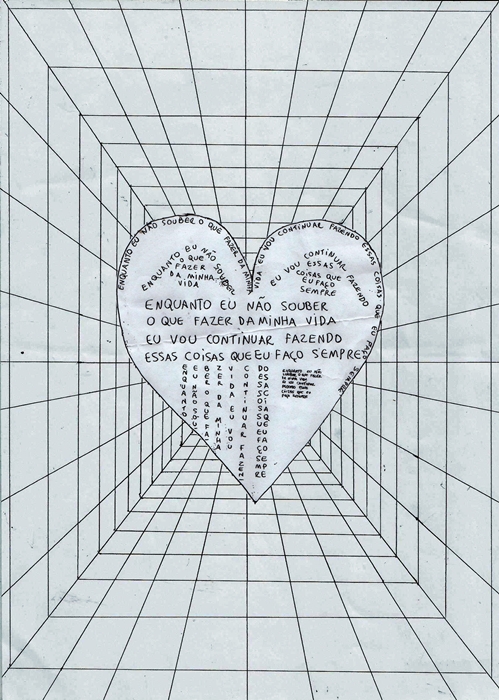 ENQUANTO EU NÃO SOUBER O QUE FAZER DA MINHA VIDA EU VOU CONTINUAR FAZENDO ESSAS COISAS QUE EU FAÇO SEMPRE
ENQUANTO EU NÃO SOUBER
O QUE
FAZER
DA MINHA
VIDA
EU VOU CONTINUAR FAZENDO
ESSAS
COISAS QUE
EU FAÇO
SEMPRE
ENQUANTO EU NÃO SOUBER
O QUE FAZER DA MINHA VIDA
EU VOU CONTINUAR FAZENDO
ESSAS COISAS QUE EU FAÇO SEMPRE
ENQUANTO
EU NÃO SOU
BER O QUE FA
ZER DA MINHA
VIDA EU VOU
CONTINUAR FAZEN
DO ESSAS COISAS QUE EU FAÇO SEMPRE